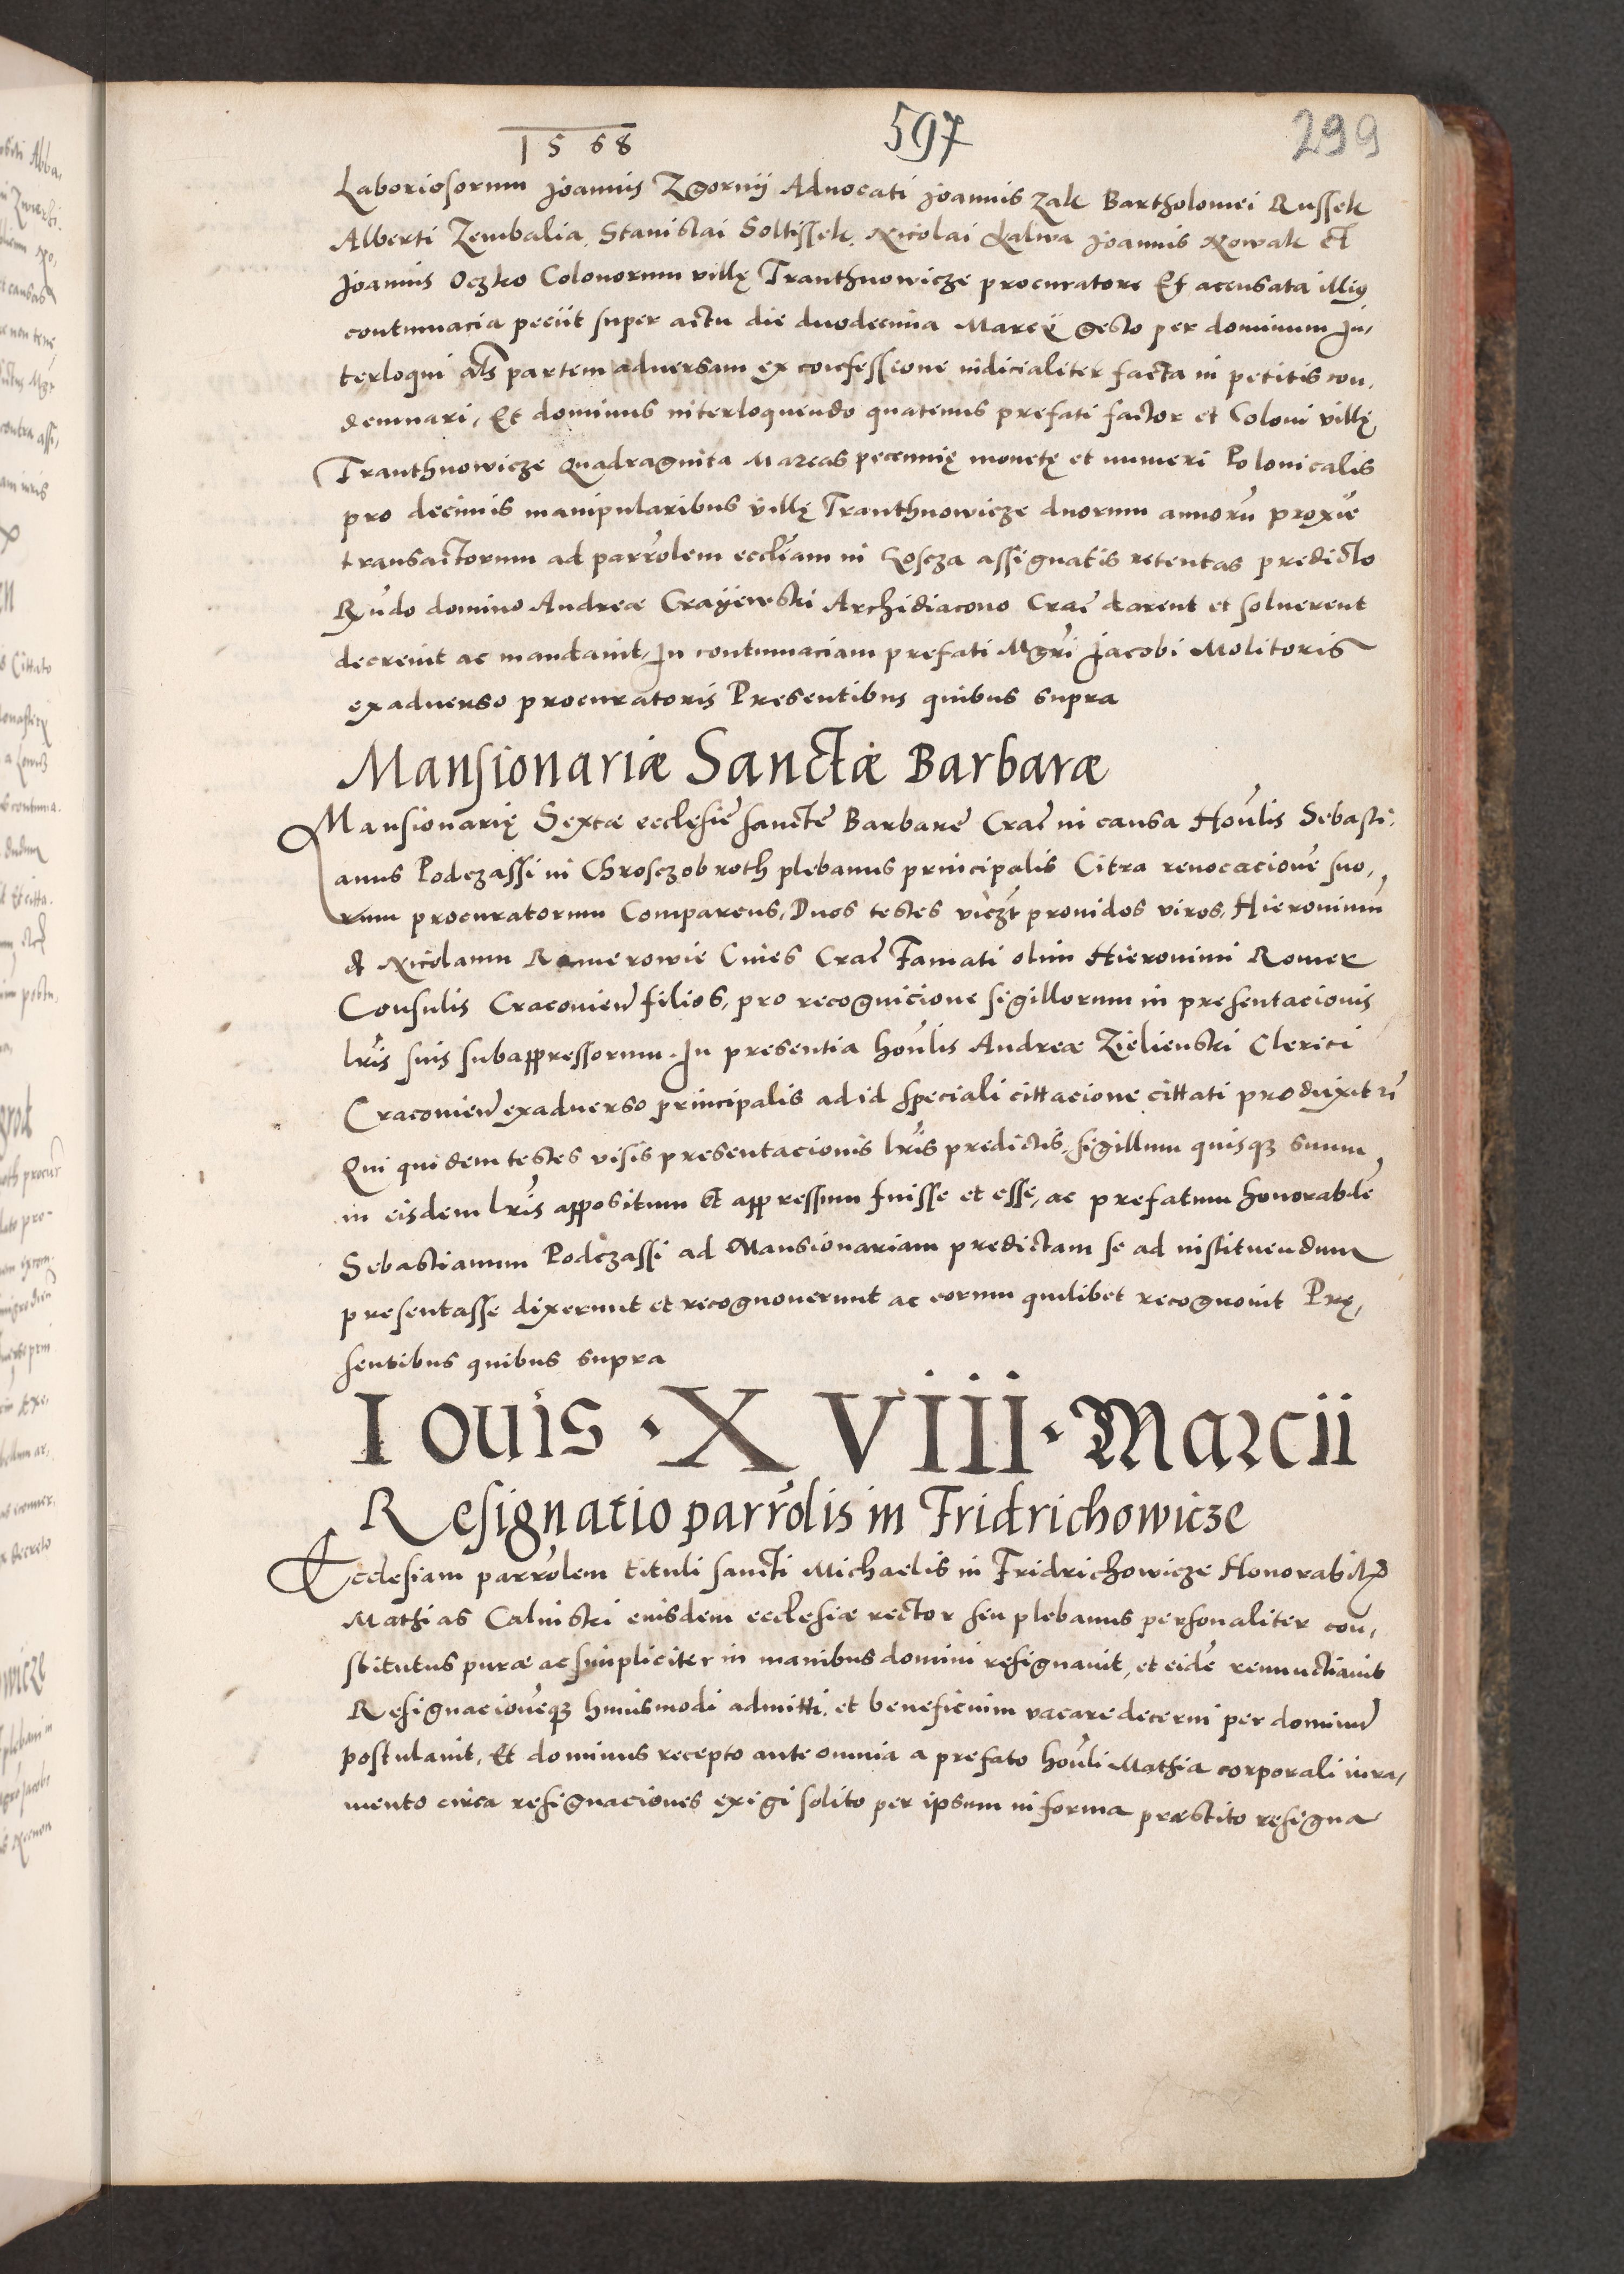 1568
597
299
Laboriosorum Joannis Zgornij Advocati Joannis Zak Bartholomei Russek
Alberti Zembalia, Stanislai Soltissek, Nicolai Kalwa Joannis Nowak et
Joannis Oczko Colonorum villę Tranthnowicze procuratore Et accusata illius
contumacia peciit super actu die duodecima Marcij gesto per dominum in,
terloqui als partem adversam ex confessione iudicialiter facta in petitis con,
demnari, Et dominus interloquendo quatenus prefati factor et Coloni villę
Tranthnowicze Quadraginta Marcas pecunię monetę et numeri Polonicalis
pro decimis manipularibus villę Tranthnowicze duorum annorū proxīe
transactorum ad parrōlem eccliam in assignatis retentas predicto
Rṽdo domino Andreæ Crayewski Archidiacono Craē darent et soluerent
decreuit ac mandauit, In contumaciam prefati Mgrī Jacobi Molitoris
exaduerso procuratoris Presentibus quibus supra
Mansionariæ Sanctæ Barbaræ
Mansionarię Sextæ ecclesiē sanctē Barbarē Craē in causa Honlis Sebasti,
anus Podczassi in Chrosczobroth plebanus principalis Citra reuocacionē suo,
rum procuratorum Comparens, Duos testes viczt prouidos viros, Hieronimū
et Nicolaum Romerowie Ciues Craē Famati olim Hieronimi Romer
Consulis Cracovien filios, pro recognicione sigillorum in presentacionis
lris suis subappressorum. In presentia honlis Andreæ Zielienski Clerici
Cracovien exaduerso principalis ad id speciali cittacione cittati produxit
Qui quidem testes visis presentacionis lris predictis, sigillum quisq3 suum
in eisdem lris appositum et appressum fuisse et esse, ac prefatum honorabilē
Sebastianum Podczassi ad Mansionariam predictam se ad instituendum
presentasse dixerunt et recognouerunt ac eorum quilibet recognouit Prę,
sentibus quibus supra
Iouis · XVIII · Marcii
Resignatio parrolis in Fridrichowicze
Ecclesiam parrōlem tituli sancti Michaelis in Fridrichowicze Honorabilis
Mathias Calinski eiusdem ecclesiæ rector seu plebanus personaliter con,
stitutus puræ ac simpliciter in manibus domini resignauit, et eidē renunctiauit
Resignacionēq3 huiusmodi admitti, et beneficium vacare decerni per dominū
postulauit, Et dominus recepto ante omnia a prefato honli Mathia corporali iura,
mento circa resignaciones exigi solito per ipsum in forma præstito resigna